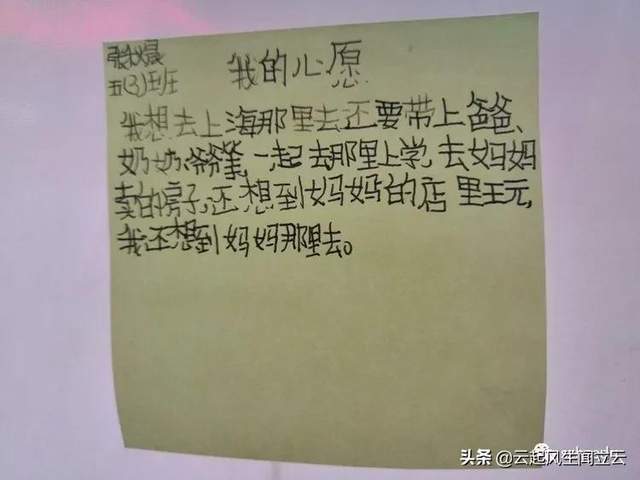 我的心愿
五(3)班
我想去上海那里去还要带上爸爸、
奶奶爷爷等,一起去那里上学,去妈妈
卖的房子,还想到妈妈的店里王元,
我还想到妈妈那里去。
头条 @云起风生闻立云